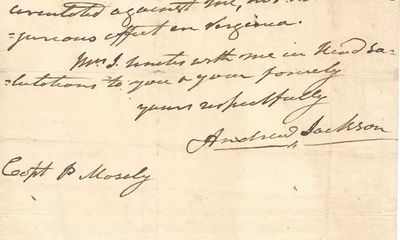 circulated against me, has no
=jurious effect on Virginia.
Mrs J. unites with me in kind sa-
=lutations to you & your family
yours respectfully
Andrew Jackson
Capt P Mosely